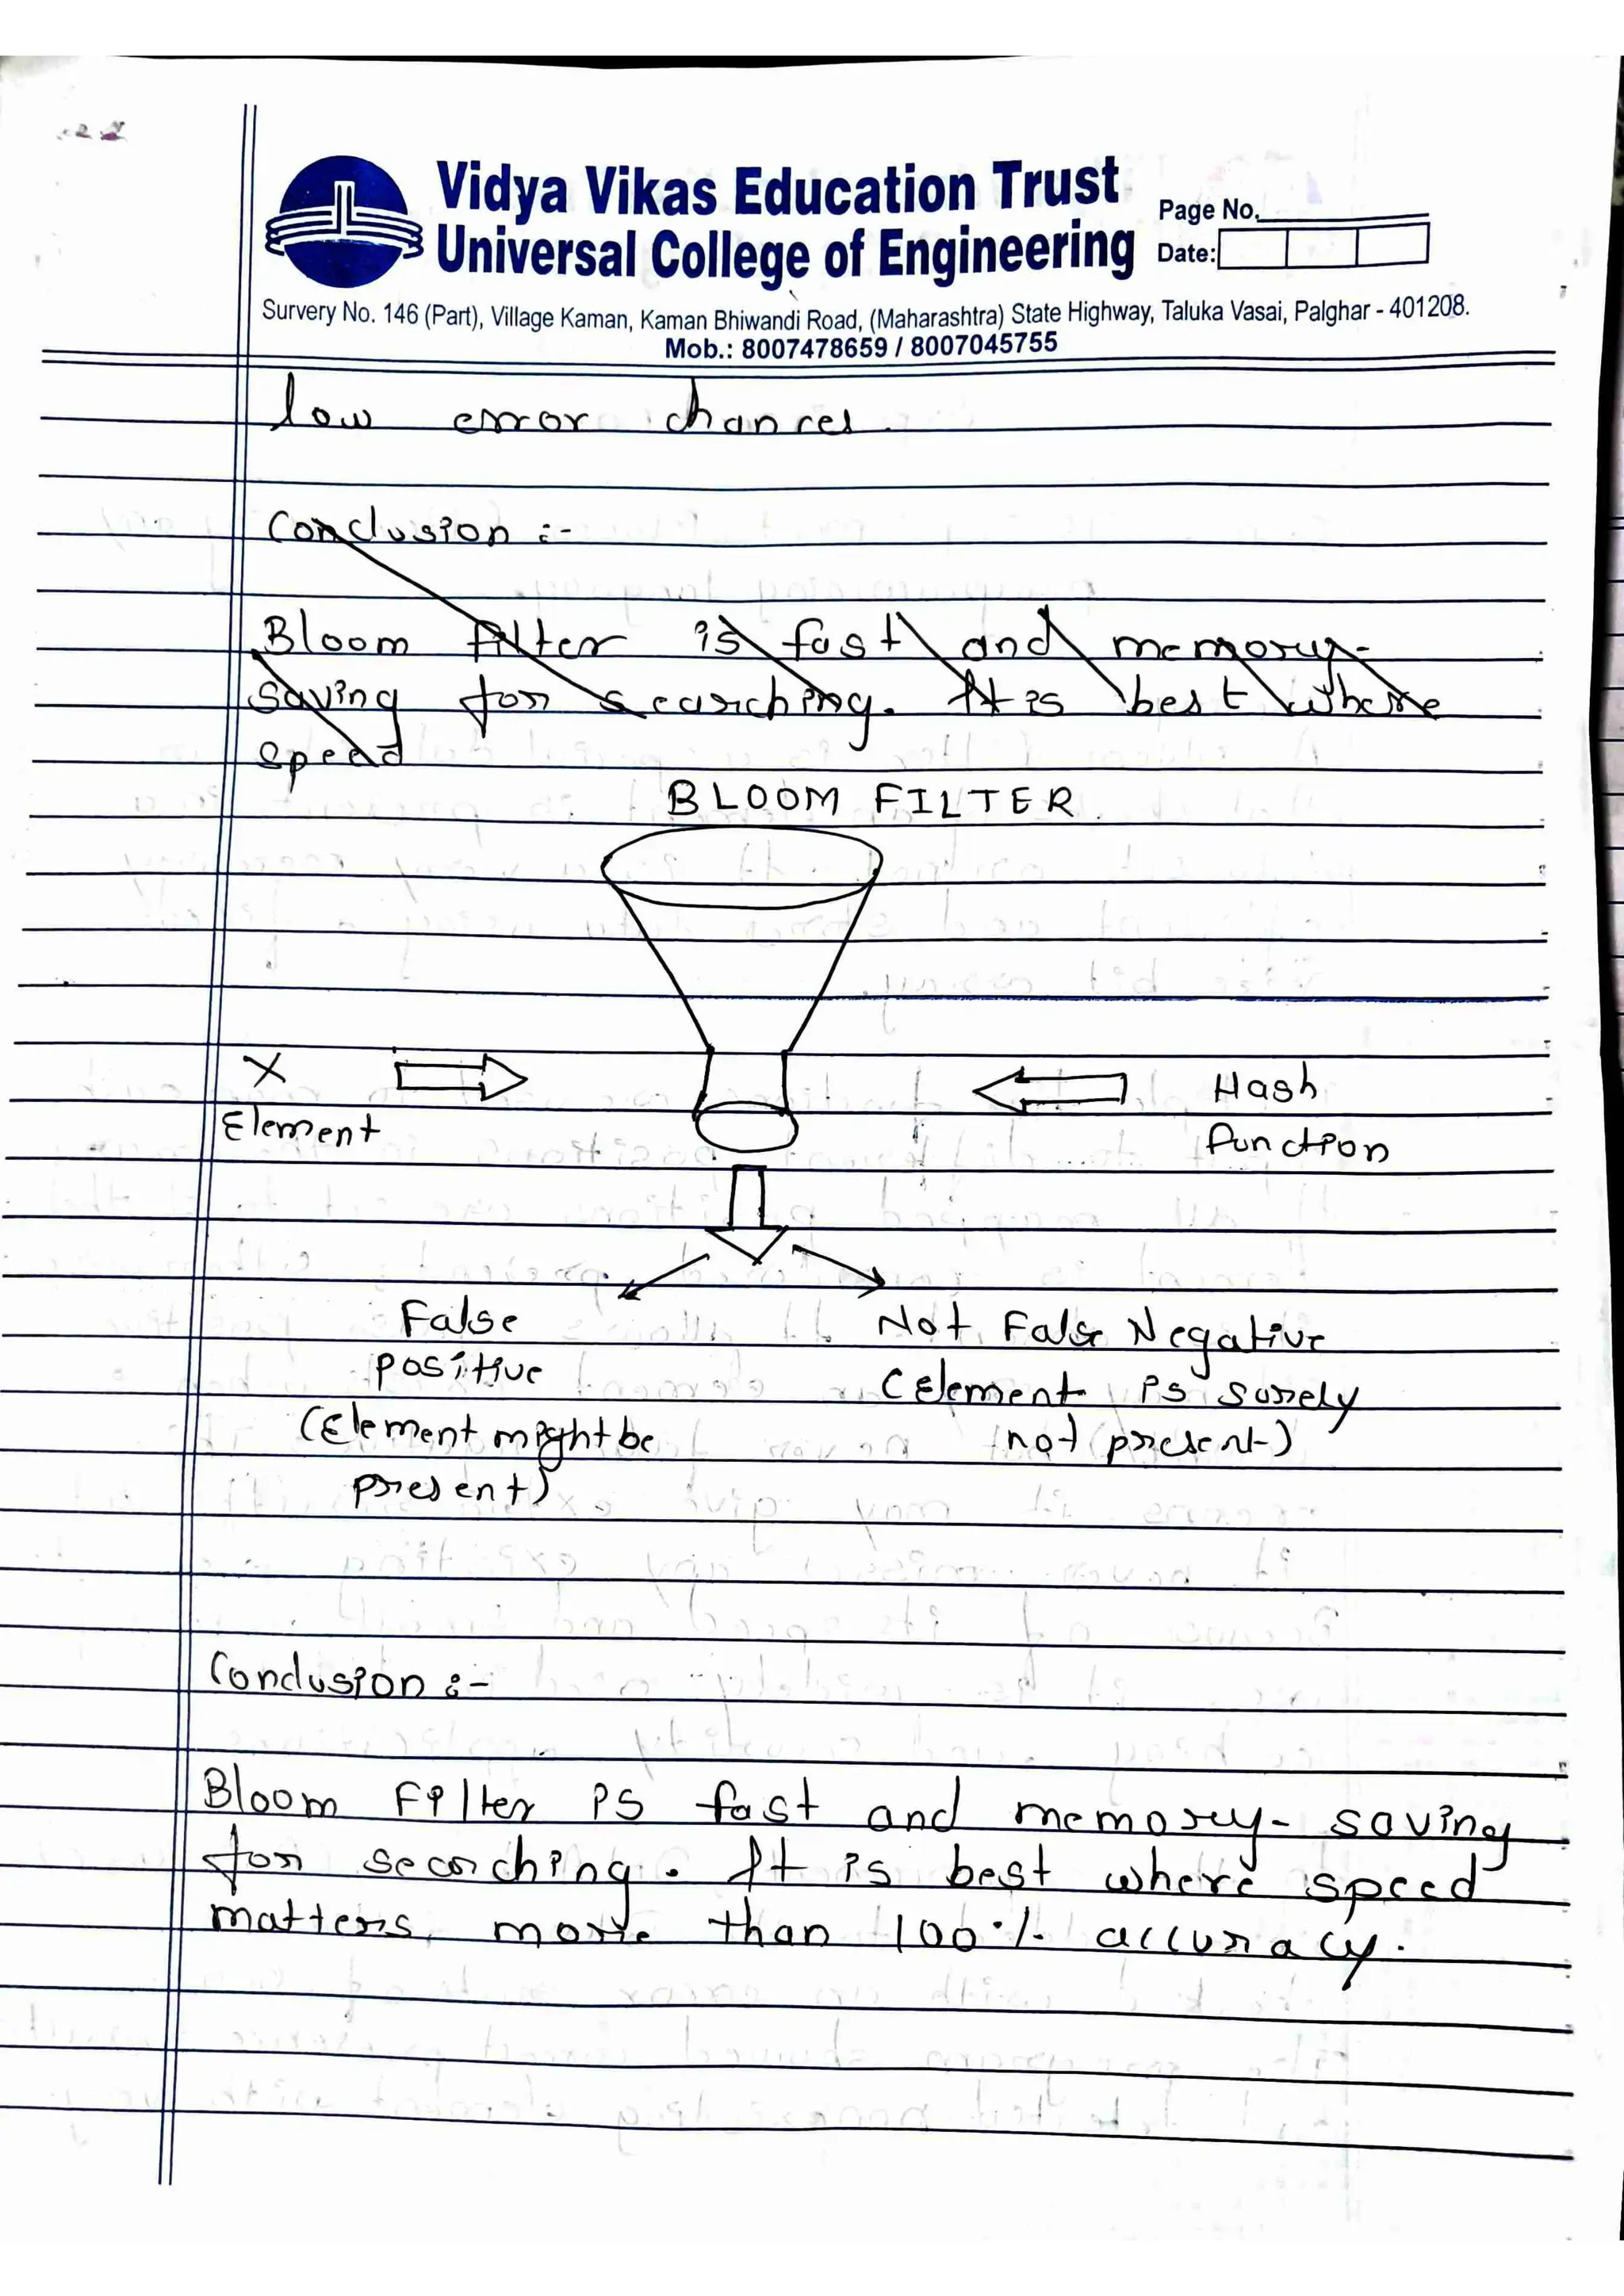 Vidya Vikas Education Trust
Universal College of Engineering
Page No.
Date:
Survery No. 146 (Part), Village Kaman, Kaman Bhiwandi Road, (Maharashtra) State Highway, Taluka Vasai, Palghar - 401208.
Mob.: 8007478659 / 8007045755
low error chances.
Conclusion :-
Bloom filter is fast and memory-
saving for searching. It is best where
speed
BLOOM FILTER
X
Element
Hash
function
False
positive
(Element might be
present)
Not False Negative
(Element is surely
not present)
Conclusion :-
Bloom Filter is fast and memory-saving
for searching. It is best where speed
matters more than 100% accuracy.